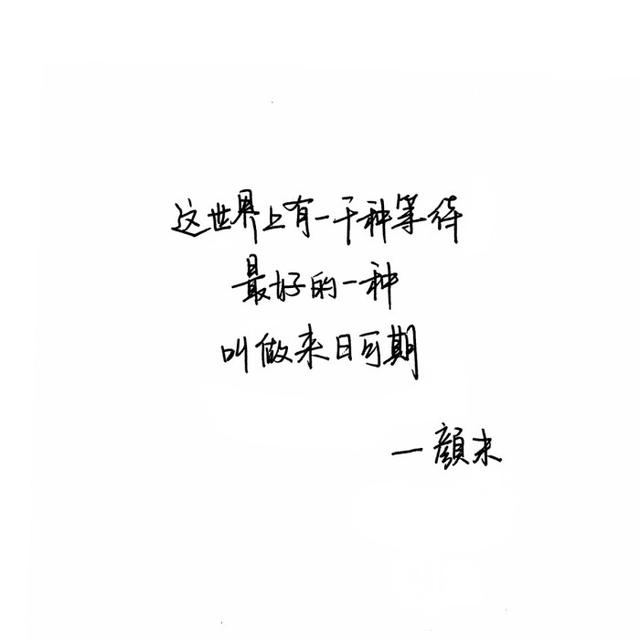 这世界上有一千种等待
最好的一种
叫做来日可期
一顔未